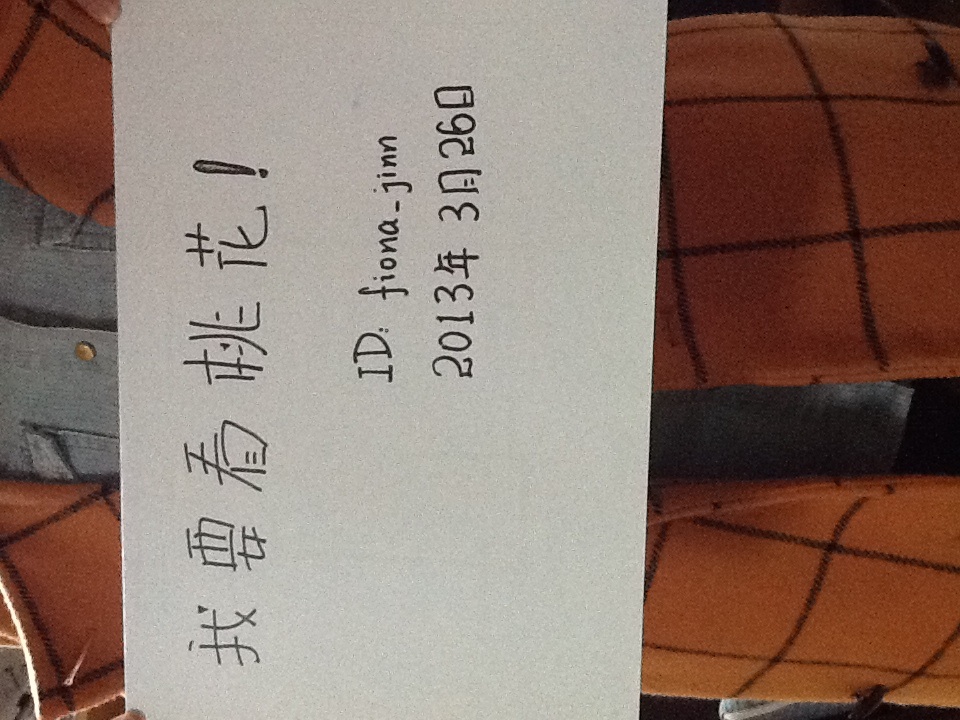 我要看桃花!
ID: fiona_jinn
2013年 3月26日